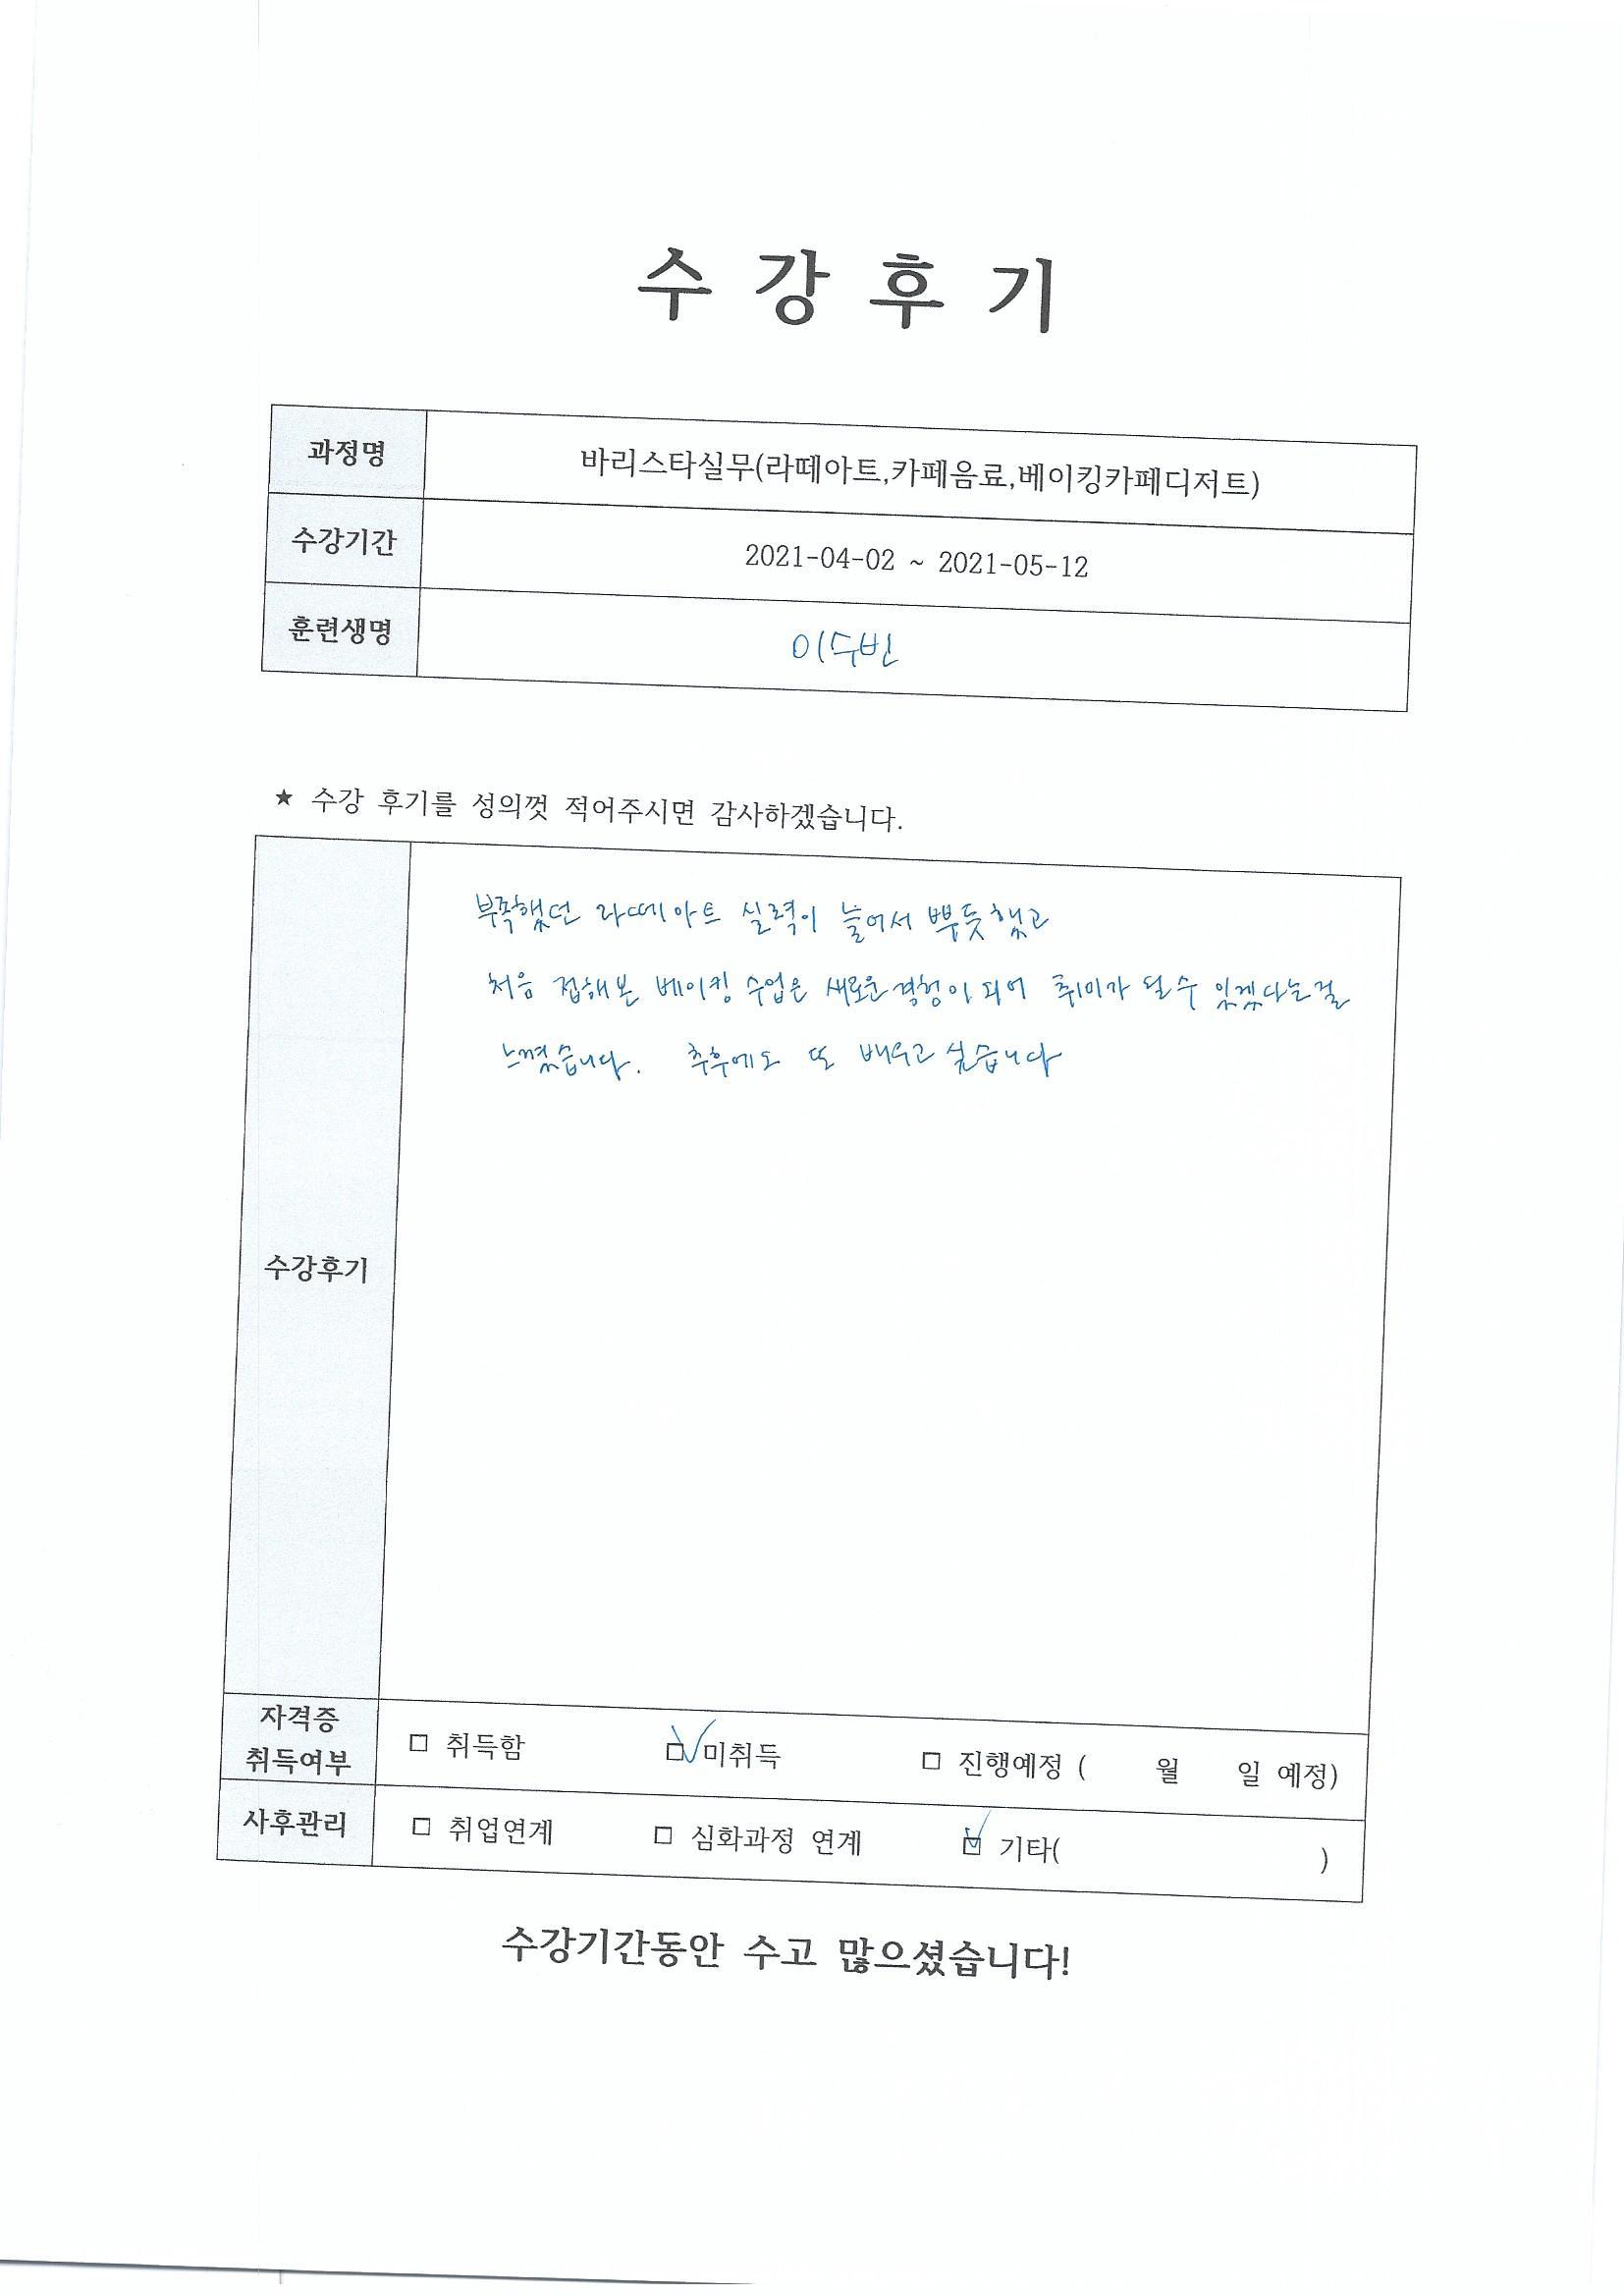 수 강 후 기
과정명 바리스타실무(라떼아트,카페음료,베이킹카페디저트)
수강기간 2021-04-02 ~ 2021-05-12
훈련생명 이수빈
★ 수강 후기를 성의껏 적어주시면 감사하겠습니다.
부족했던 라떼아트 실력이 늘어서 뿌듯했고
처음 접해본 베이킹 수업은 새로운 경험이 되어 취미가 될 수 있겠다는걸
느꼈습니다. 추후에도 또 배우고 싶습니다
수강후기
자격증
취득여부 □ 취득함 ☑ 미취득 □ 진행예정 ( 월 일 예정)
사후관리 □ 취업연계 □ 심화과정 연계 ☑ 기타( )
수강기간동안 수고 많으셨습니다!